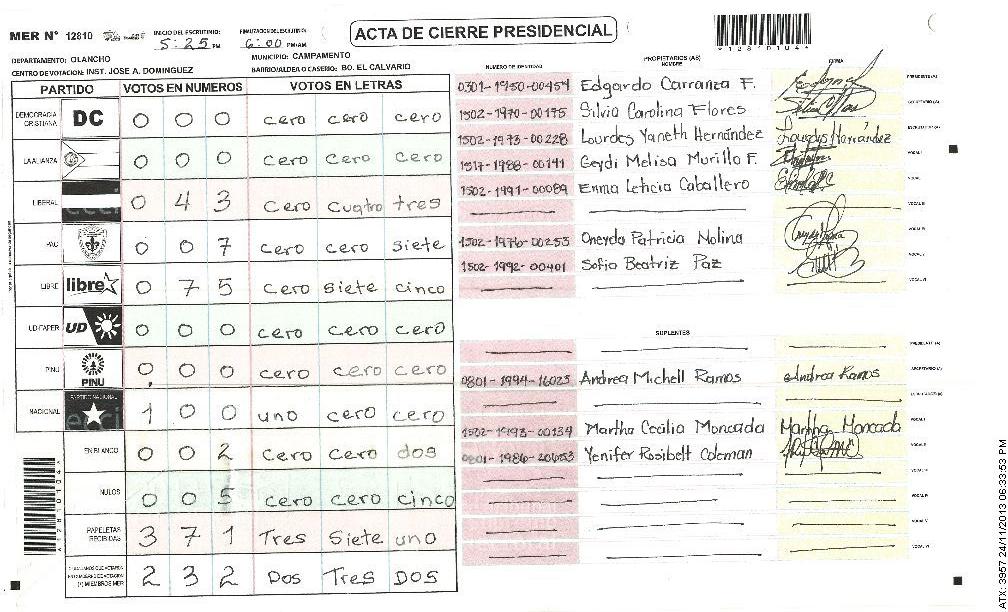 MER N° 12810
INICIO DEL ESCRUTINIO: 5:25 PM
FINALIZACION DEL ESCRUTINIO: 6:00 PM/AM
ACTA DE CIERRE PRESIDENCIAL
DEPARTAMENTO: OLANCHO
MUNICIPIO: CAMPAMENTO
CENTRO DE VOTACION: INST. JOSE A. DOMINGUEZ
BARRIO/ALDEA O CASERIO: BO. EL CALVARIO
PARTIDO VOTOS EN NUMEROS VOTOS EN LETRAS
DEMOCRACIA CRISTIANA DC 0 0 0 cero cero cero
LA ALIANZA 0 0 0 cero cero cero
LIBERAL 0 4 3 cero cuatro tres
PAC 0 0 7 cero cero siete
LIBRE libre 0 7 5 cero siete cinco
UD-FAPER UD 0 0 0 cero cero cero
PINU PINU 0 0 0 cero cero cero
NACIONAL PARTIDO NACIONAL 1 0 0 uno cero cero
EN BLANCO 0 0 2 cero cero dos
NULOS 0 0 5 cero cero cinco
PAPELETAS RECIBIDAS 3 7 1 Tres Siete uno
2 3 2 Dos Tres Dos
NUMERO DE IDENTIDAD
PROPIETARIOS (AS)
NOMBRE
FIRMA
0301-1950-00454 Edgardo Carranza F. PRESIDENTE (A)
1502-1970-00175 Silvia Carolina Flores SECRETARIO (A)
1502-1973-00228 Lourdes Yaneth Hernández Lourdes Hernández ESCRUTADOR (A)
1517-1988-00141 Geydi Melisa Murillo F. VOCAL I
1502-1991-00089 Enma Leticia Caballero VOCAL II
VOCAL III
1502-1976-00253 Oneyda Patricia Molina VOCAL IV
1502-1992-00401 Sofia Beatriz Paz VOCAL V
VOCAL VI
SUPLENTES
PRESIDENTE (A)
0801-1994-16023 Andrea Michell Ramos Andrea Ramos SECRETARIO (A)
ESCRUTADOR (A)
1502-1993-00134 Martha Cecilia Moncada Martha Moncada VOCAL I
0801-1986-20653 Yenifer Rosibell Coleman VOCAL II
VOCAL III
VOCAL IV
VOCAL V
VOCAL VI
ATX: 3957 24/11/2013 06:33:53 PM